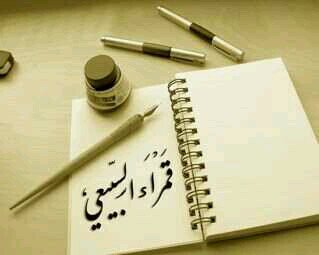 قمراء السّبيعي